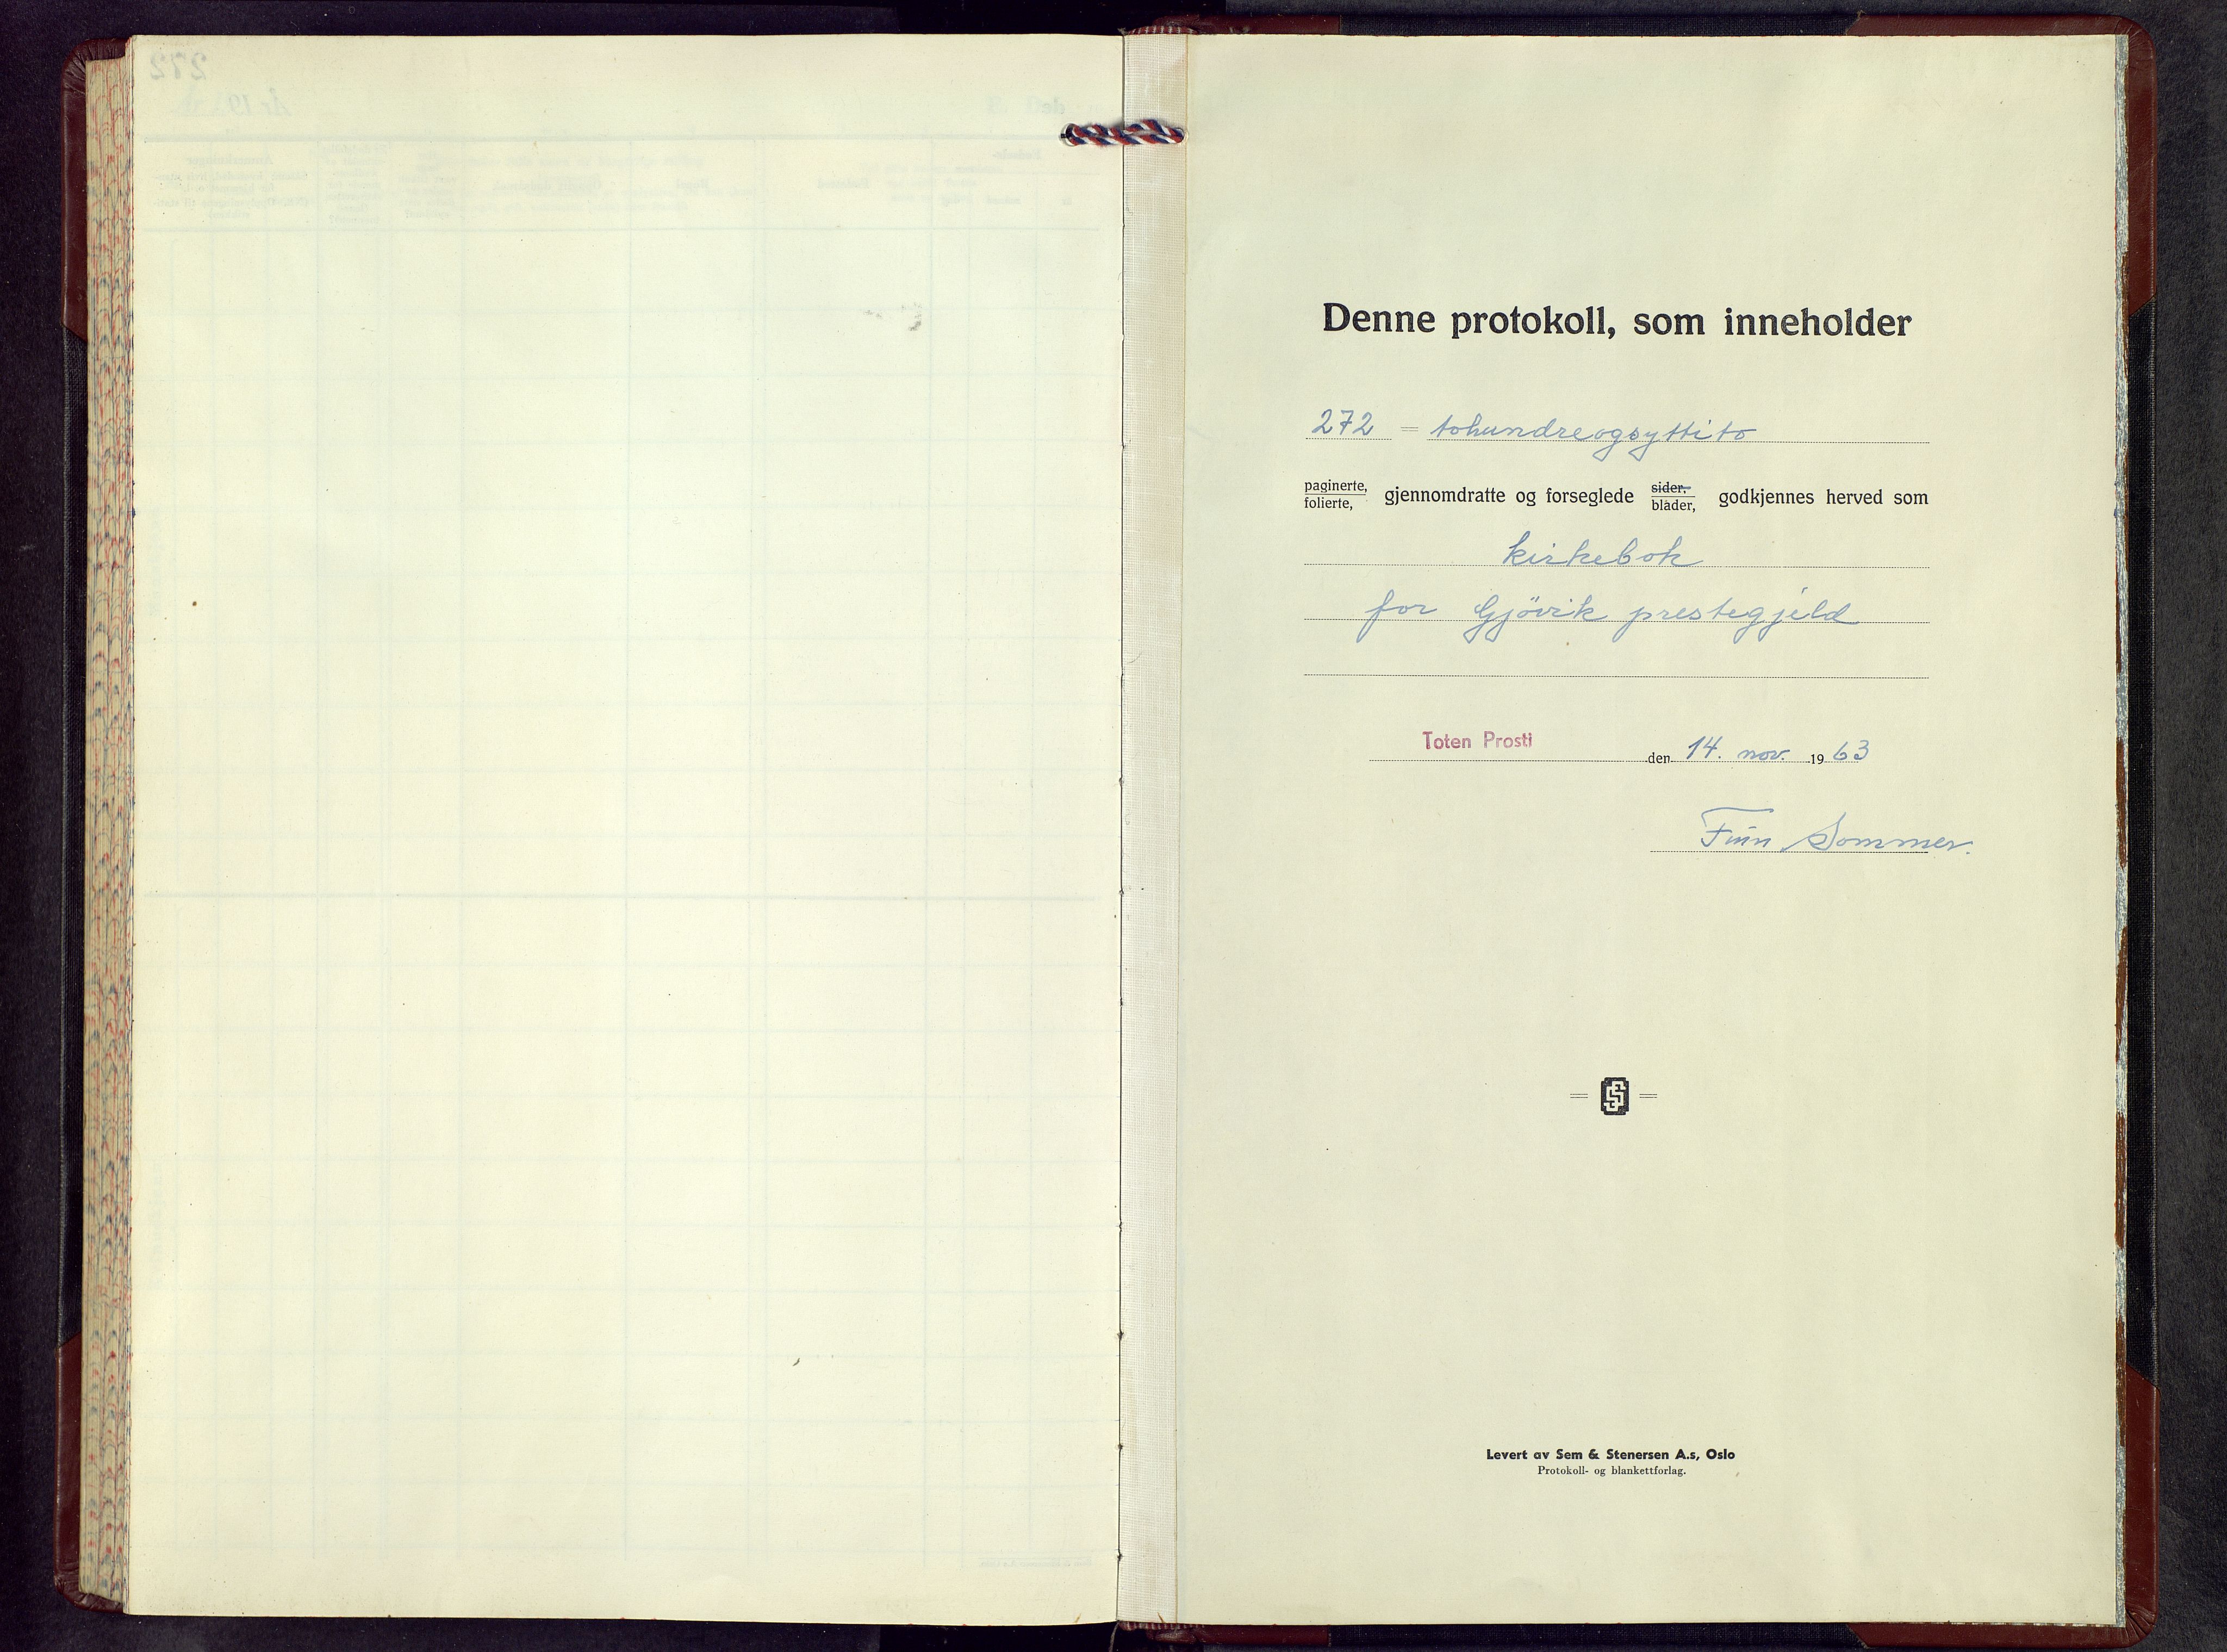 272
År 19
Denne protokoll, som inneholder
272 = tohundreogsyttito
paginerte,
folierte, gjennomdratte og forseglede sider, blader, godkjennes herved som
kirkebok
for Gjövik prestegjeld
Toten Prosti den 14. nov. 1963
Finn Sommer.
Levert av Sem & Stenersen A.s, Oslo
Protokoll- og blankettforlag.